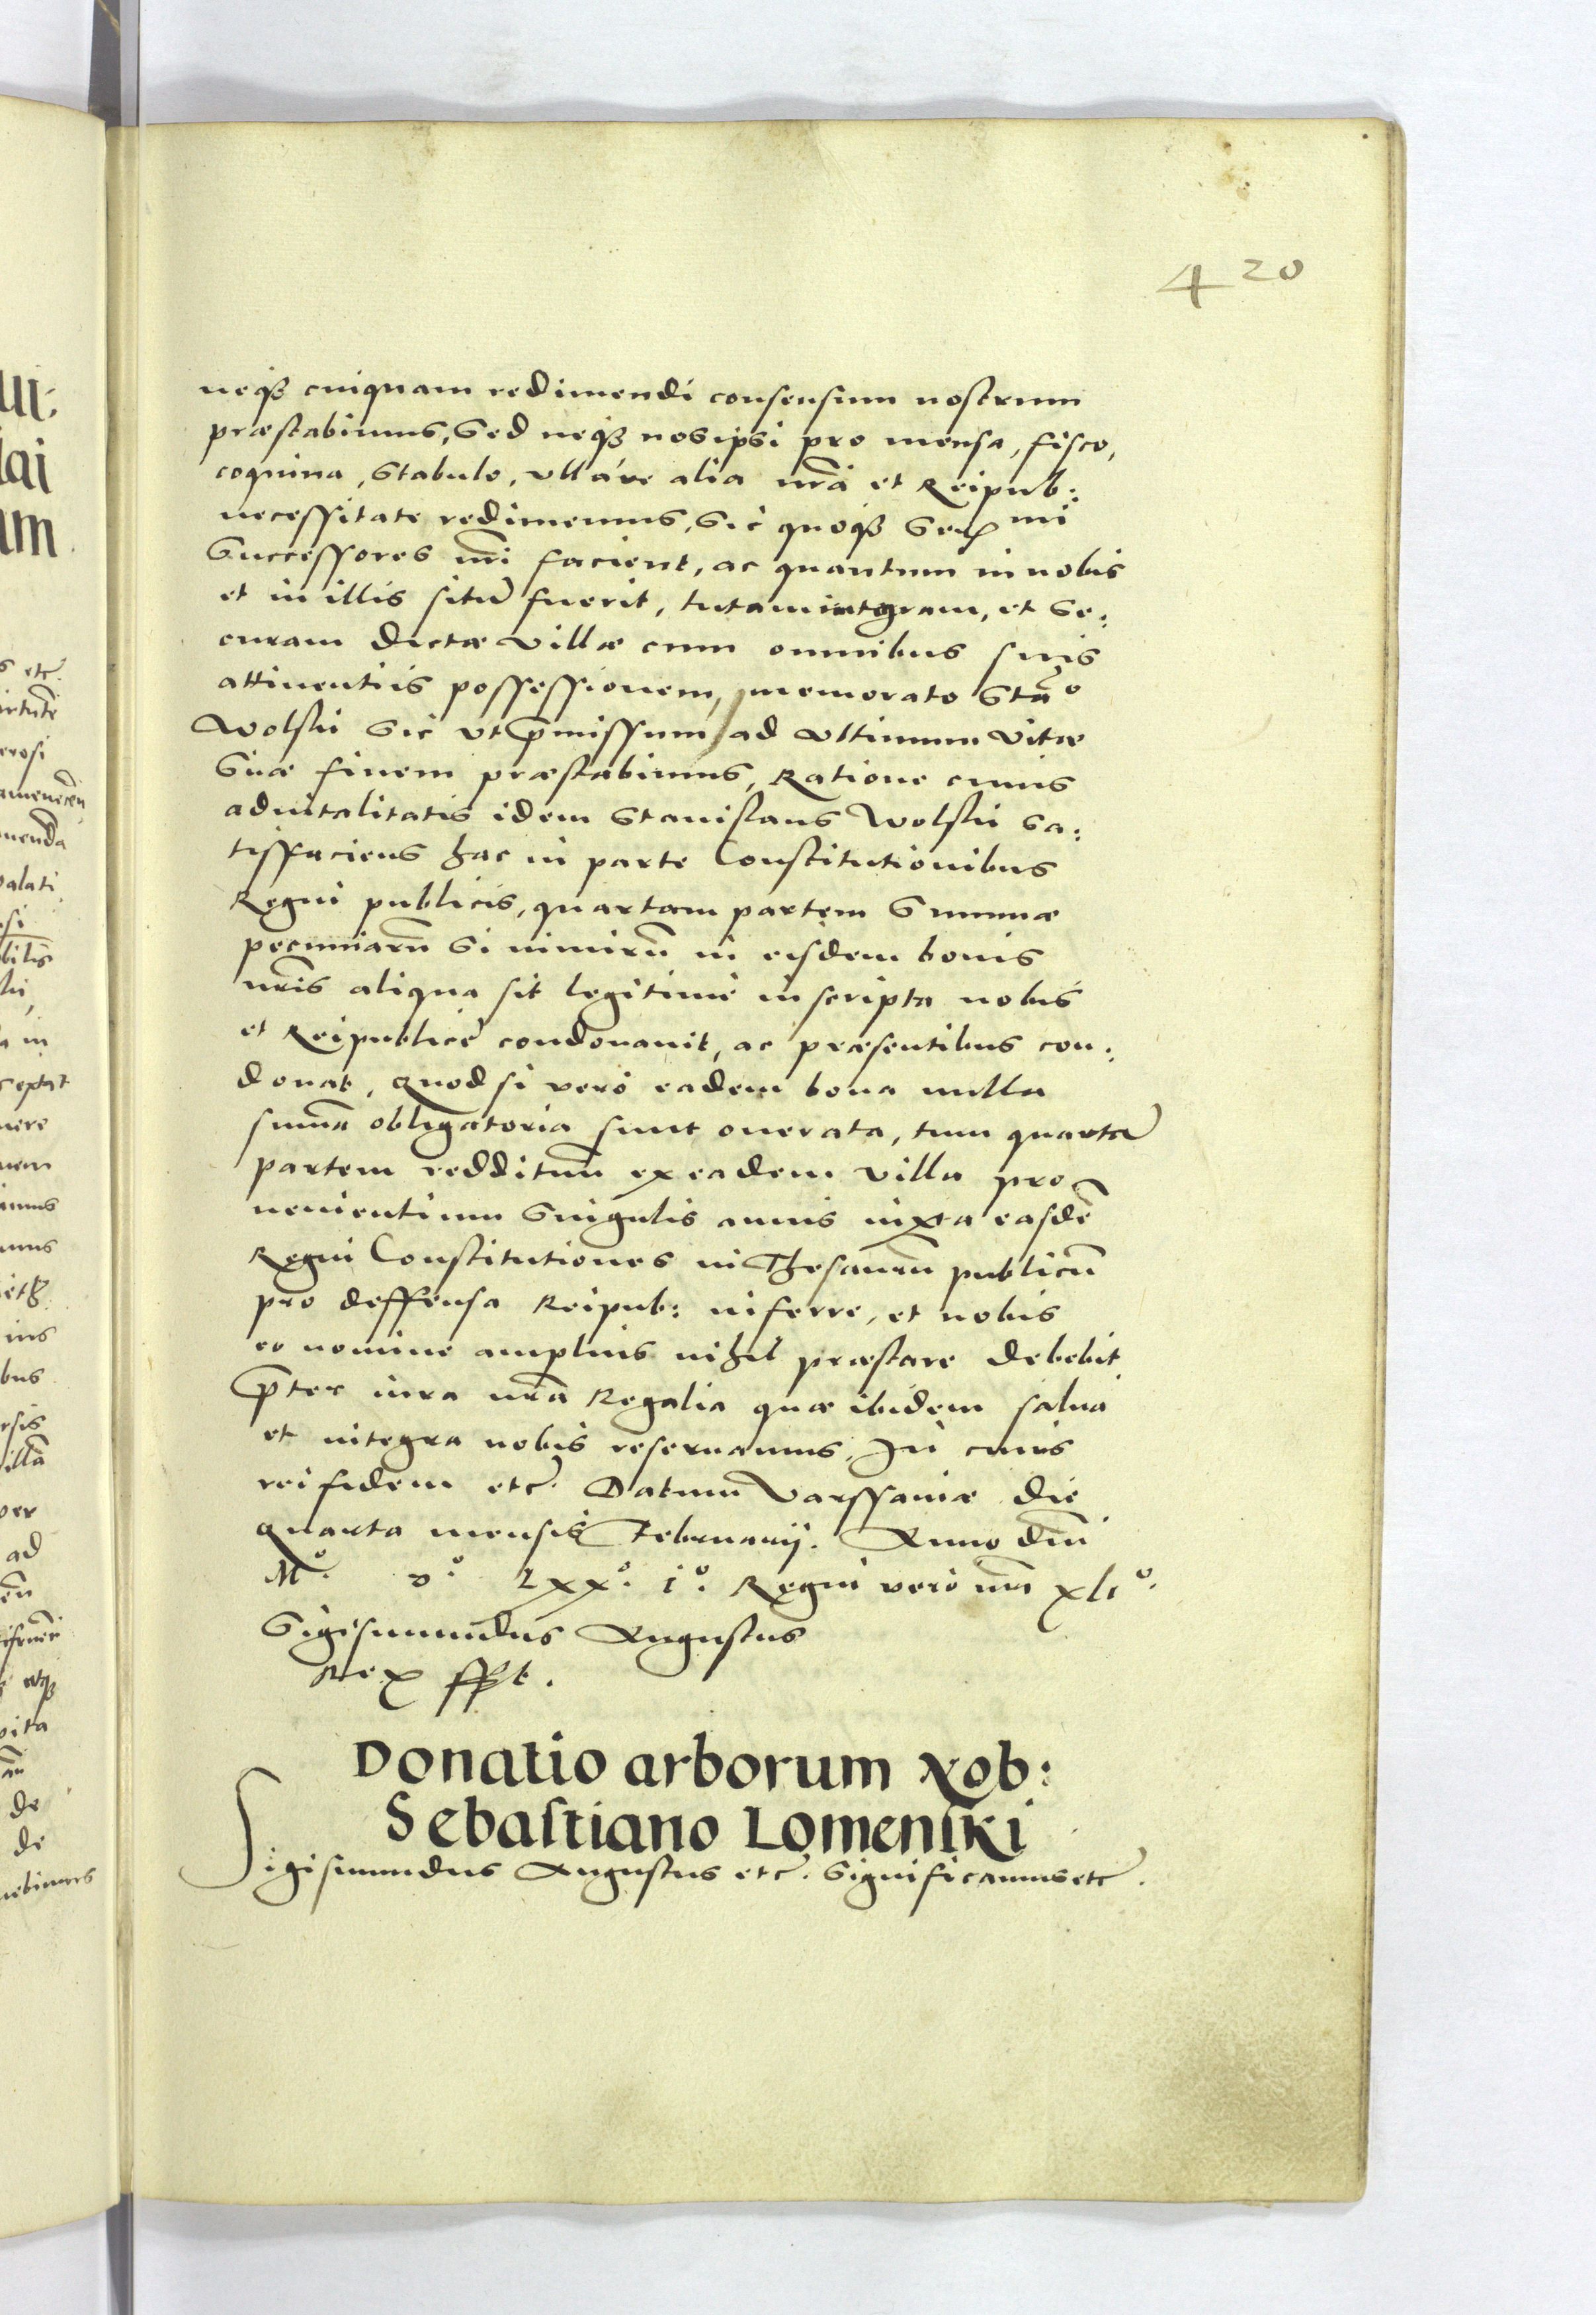 420
neq3 cuiquam redimendi consensum nostrum
præstabimus, Sed neq3 nos ipsi pro mensa, fisco,
coquina, Stabulo, vllá've alia nr̃a et Reipub:
necessitate redimemus, Sic quoq3 Ser^mi
Successores nr̃i facient, ac quantum in nobis
et in illis sitũ fuerit, tutam integram, et Se:
curam dictæ villæ cum omnibus suis
attinentiis possessionem, memorato Stão
Wolski Sic vt p̃missum, ad vltimum vitæ
Suæ finem præstabimus, Ratione cuius
aduitalitatis idem Stanislaus Wolski Sa:
tisfaciens hac in parte Constitutionibus
Regni publicis, quartam partem Summæ
pecuniarũ Si nimirũ in eisdem bonis
nr̃is aliqua sit legitimè inscripta nobis
et Reipublicè condonauit, ac præsentibus con:
donat, Quod si verò eadem bona nulla
sum̃a obligatoria sunt onerata, tum quartã
partem reddituũ ex eadem villa pro
uenientium Singulis annis iuxta easdẽ
Regni Constitutiones in Thesaurũ publicũ
pro deffensa Reipub: inferre, et nobis
eo nomine amplius nihil præstare debebit
p̃ter iura nr̃a Regalia quæ ibidem salua
et integra nobis reseruamus. In cuius
rei fidem etc̃. Datum Varssauiæ die
quarta mensis Februarij. Anno dñi
M°. D°. Lxx°. i°. Regni verò nr̃i xlı°.
Sigismundus Augustus
Rex sspt.
Donatio arborum Nob:
Sebastiano Lomenski
Sigismundus Augustus etc̃. Significamus etc̃.